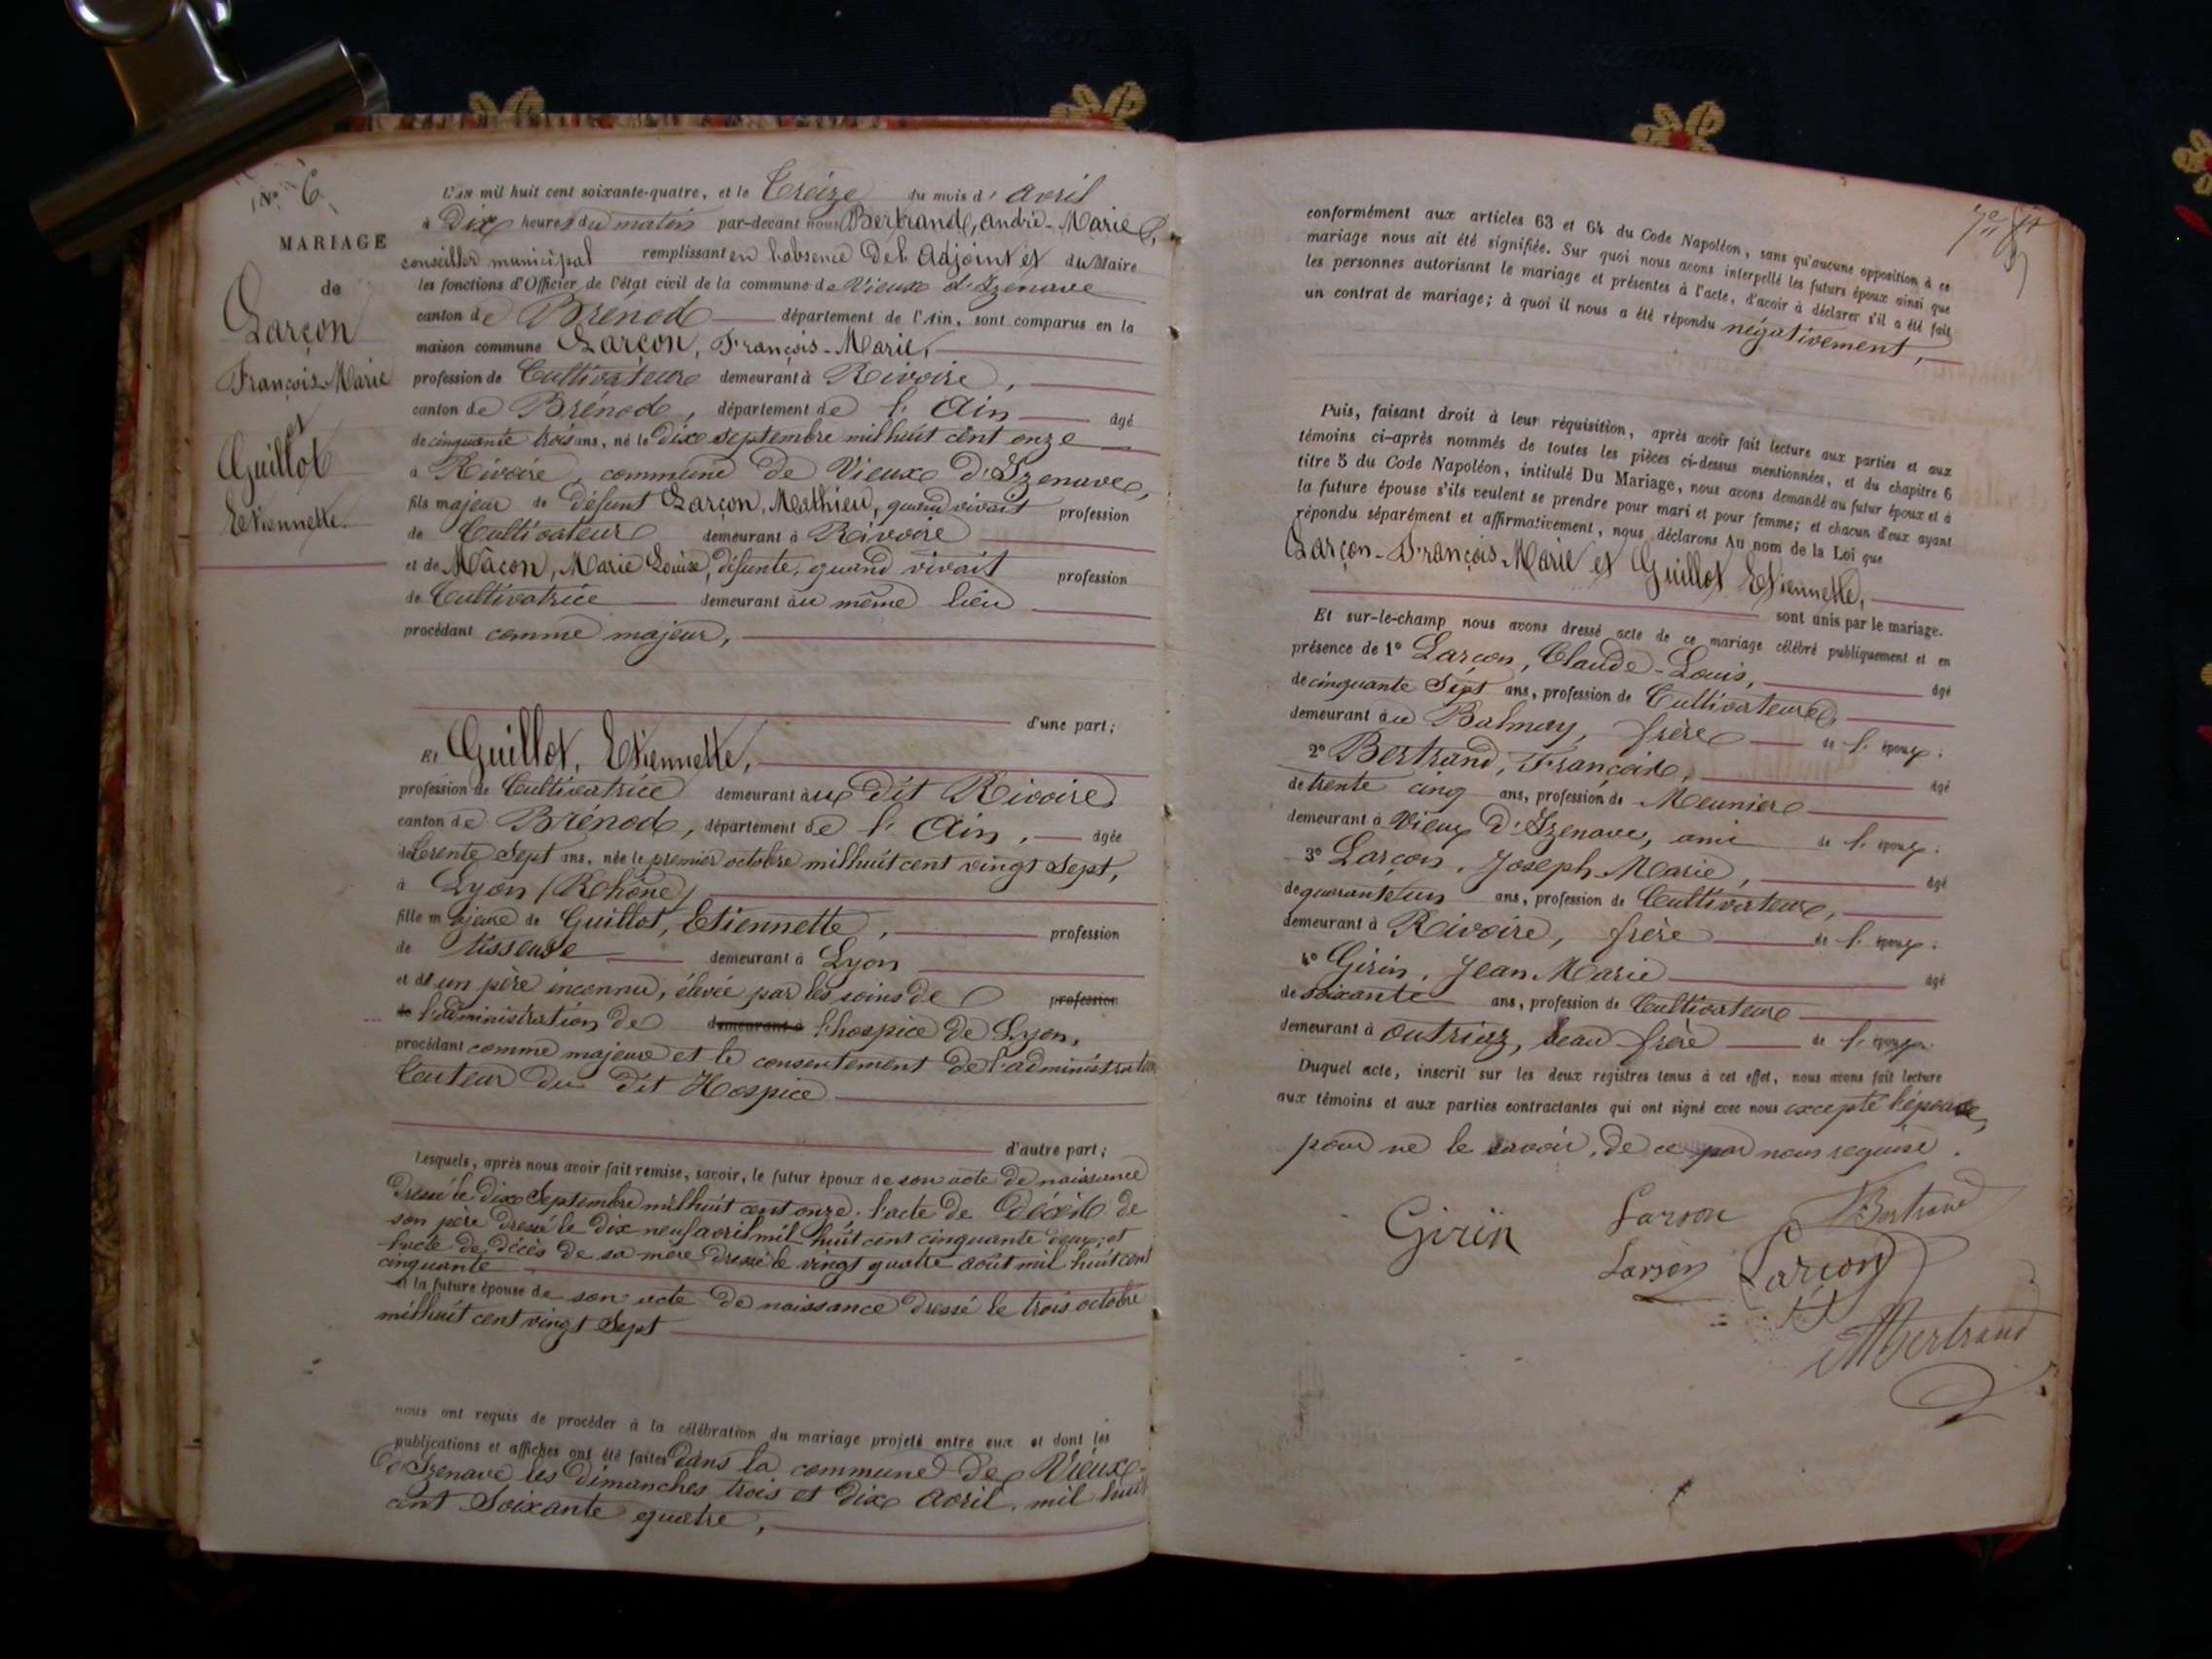 N° 6
MARIAGE
de
Larçon
François-Marie
et
Guillot
Etiennette.
L'an mil huit cent soixante-quatre, et le Treize du mois d'avril
à Dix heures du matin par-devant nous Bertrand, André-Marie,
conseiller municipal remplissant en l'absence de l'Adjoint et du Maire
les fonctions d'Officier de l'état civil de la commune de Vieux d'Izenave
canton de Brénod département de l'Ain, sont comparus en la
maison commune Larçon, François-Marie,
profession de Cultivateur demeurant à Rivoire,
canton de Brénod, département de l'Ain âgé
de cinquante trois ans, né le dix septembre mil huit cent onze
à Rivoire, commune de Vieux d'Izenave,
fils majeur de défunt Larçon, Mathieu, quand vivait profession
de Cultivateur demeurant à Rivoire
et de Mâcon, Marie Louise, défunte, quand vivait profession
de Cultivatrice demeurant au même lieu
procédant comme majeur,
d'une part;
Et Guillot, Etiennette,
profession de Cultivatrice demeurant au dit Rivoire
canton de Brénod, département de l'Ain, âgée
de trente sept ans, née le premier octobre mil huit cent vingt sept,
à Lyon (Rhône)
fille majeure de Guillot, Etiennette, profession
de Tisseuse demeurant à Lyon
et d'un père inconnu, élevée par les soins de profession
de l'administration de demeurant à l'hospice de Lyon,
procédant comme majeure et le consentement de l'administration
tuteur du dit Hospice
d'autre part;
Lesquels, après nous avoir fait remise, savoir, le futur époux de son acte de naissance
dressé le dix Septembre mil huit cent onze, l'acte de décès de
son père dressé le dix neuf avril mil huit cent cinquante deux; et
l'acte de décès de sa mère dressé le vingt quatre août mil huit cent
cinquante
et la future épouse de son acte de naissance dressé le trois octobre
mil huit cent vingt Sept
nous ont requis de procéder à la célébration du mariage projeté entre eux et dont les
publications et affiches ont été faites dans la commune de Vieux
d'Izenave les dimanches trois et dix avril, mil huit
cent Soixante quatre,
conformément aux articles 63 et 64 du Code Napoléon, sans qu'aucune opposition à ce
mariage nous ait été signifiée. Sur quoi nous avons interpellé les futurs époux ainsi que
les personnes autorisant le mariage et présentes à l'acte, d'avoir à déclarer s'il a été fait
un contrat de mariage; à quoi il nous a été répondu négativement,
Puis, faisant droit à leur réquisition, après avoir fait lecture aux parties et aux
témoins ci-après nommés de toutes les pièces ci-dessus mentionnées, et du chapitre 6
titre 5 du Code Napoléon, intitulé Du Mariage, nous avons demandé au futur époux et à
la future épouse s'ils veulent se prendre pour mari et pour femme; et chacun d'eux ayant
répondu séparément et affirmativement, nous déclarons Au nom de la Loi que
Larçon-François-Marie et Guillot Etiennette,
sont unis par le mariage.
Et sur-le-champ nous avons dressé acte de ce mariage célébré publiquement et en
présence de 1° Larçon, Claude-Louis, âgé
de cinquante Sept ans, profession de Cultivateur,
demeurant au Balmay, frère de l'époux;
2° Bertrand, François, âgé
de trente cinq ans, profession de Meunier
demeurant à Vieux d'Izenave, ami de l'époux;
3° Larçon, Joseph-Marie, âgé
de quarante un ans, profession de Cultivateur,
demeurant à Rivoire, frère de l'époux;
4° Girin, Jean Marie âgé
de soixante ans, profession de Cultivateur
demeurant à Outriaz, beau-frère de l'époux.
Duquel acte, inscrit sur les deux registres tenus à cet effet, nous avons fait lecture
aux témoins et aux parties contractantes qui ont signé avec nous excepté l'épouse,
pour ne le savoir, de ce par nous requise.
Girin Larson Bertrand
Larson Larçon
Bertrand